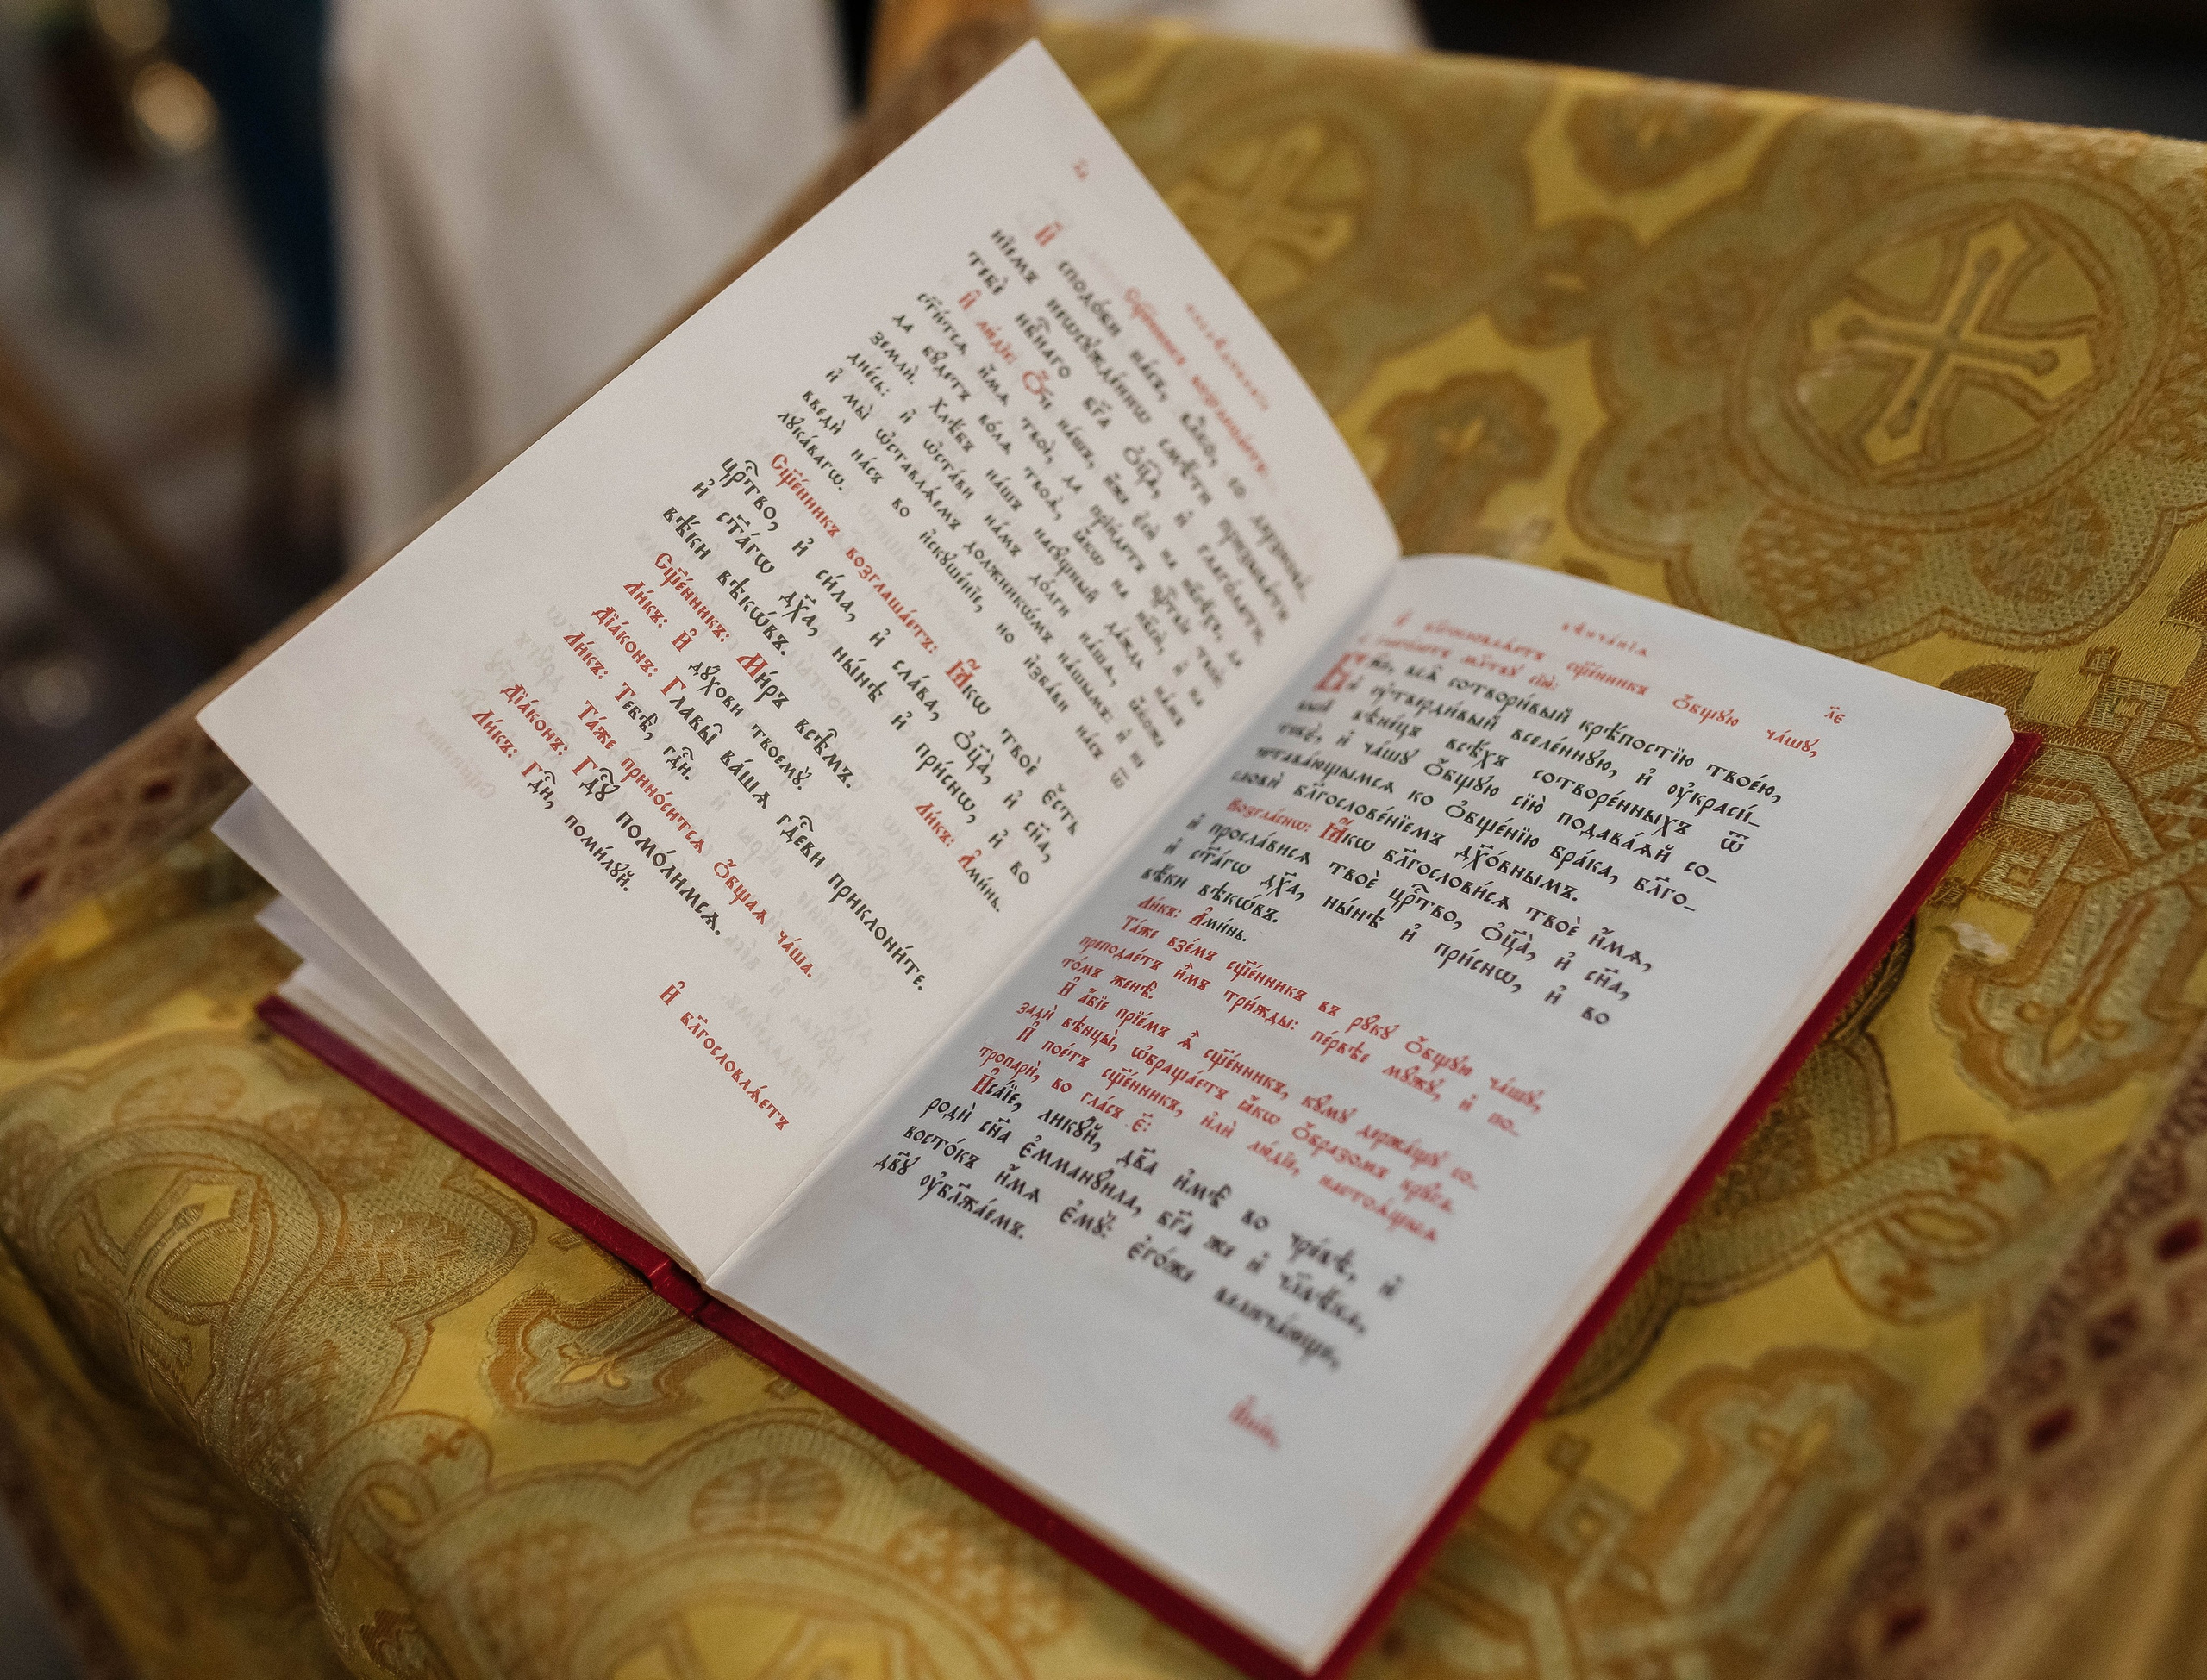 И҆ сподо́би на́съ, влⷣко, со дерзнове́-
нїемъ неѡсꙋжде́ннѡ смѣ́ти призыва́ти
тебѐ нбⷭ҇наго бг҃а ѻ҆ц҃а̀, и҆ глаго́лати.
И҆ лю́дїе: Ѻ҆́ч҃е на́шъ, и҆́же є҆сѝ на нб҃сѣ́хъ, да
ст҃и́тсѧ и҆́мѧ твоѐ, да прїи́детъ црⷭ҇твїе твоѐ,
да бꙋ́детъ во́лѧ твоѧ̀, ꙗ҆́кѡ на нб҃сѝ, и҆ на
землѝ. Хлѣ́бъ на́шъ насꙋ́щный да́ждь на́мъ
дне́сь: и҆ ѡ҆ста́ви на́мъ до́лги на́шѧ, ꙗ҆́коже
и҆ мы̀ ѡ҆ставлѧ́емъ должникѡ́мъ на́шымъ: и҆ не
введѝ на́съ во и҆скꙋше́нїе, но и҆зба́ви на́съ ѿ
лꙋка́вагѡ.
Сщ҃е́нникъ возглаша́етъ: Ꙗ҆́кѡ твоѐ є҆́сть
црⷭ҇тво, и҆ си́ла, и҆ сла́ва, ѻ҆ц҃а̀, и҆ сн҃а,
и҆ ст҃а́гѡ дх҃а, ны́нѣ и҆ при́снѡ, и҆ во
вѣ́ки вѣкѡ́въ. Ли́къ: А҆ми́нь.
Сщ҃е́нникъ: Ми́ръ всѣ̑мъ.
Ли́къ: И҆ дꙋ́хови твоемꙋ̀.
Дїа́конъ: Главы̑ ва́шѧ гдⷭ҇еви приклони́те.
Ли́къ: Тебѣ̀, гдⷭ҇и.
Та́же прино́ситсѧ ѻ҆́бщаѧ ча́ша.
Дїа́конъ: Гдⷭ҇ꙋ помо́лимсѧ.
Ли́къ: Гдⷭ҇и, поми́лꙋй.
И҆ блг҃ословлѧ́етъ
вѣнча́нїѧ л҃е
И҆ блг҃ословлѧ́етъ сщ҃е́нникъ ѻ҆́бщꙋю ча́шꙋ,
и҆ глаго́летъ мл҃твꙋ сїю̀:
Бж҃е, всѧ̑ сотвори́вый крѣ́постїю твое́ю,
и҆ ᲂу҆тверди́вый вселе́ннꙋю, и҆ ᲂу҆краси́-
вый вѣне́цъ всѣ́хъ сотворе́нныхъ ѿ
тебє̀, и҆ ча́шꙋ ѻ҆́бщꙋю сїю̀ подава́ѧй со-
четава́ющымсѧ ко ѻ҆бще́нїю бра́ка, блг҃о-
словѝ блг҃ослове́нїемъ дх҃о́внымъ.
Возгла́снѡ: Ꙗ҆́кѡ блг҃ослови́сѧ твоѐ и҆́мѧ,
и҆ просла́висѧ твоѐ црⷭ҇тво, ѻ҆ц҃а̀, и҆ сн҃а,
и҆ ст҃а́гѡ дх҃а, ны́нѣ и҆ при́снѡ, и҆ во
вѣ́ки вѣкѡ́въ.
Ли́къ: А҆ми́нь.
Та́же взе́мъ сщ҃е́нникъ въ рꙋкꙋ̀ ѻ҆́бщꙋю ча́шꙋ,
преподае́тъ и҆̀мъ три́жды: пе́рвѣе мꙋ́жꙋ, и҆ по-
то́мъ женѣ̀.
И҆ а҆́бїе прїе́мъ ѧ҆̀ сщ҃е́нникъ, кꙋ́мꙋ держа́щꙋ со-
задѝ вѣнцы̀, ѡ҆браща́етъ ꙗ҆́кѡ ѻ҆́бразомъ крꙋ́га.
И҆ пое́тъ сщ҃е́нникъ, и҆лѝ лю́дїе, настоѧ́щыѧ
тропарѝ, во гла́съ є҃:
И҆са́їе, ликꙋ́й, дв҃а и҆мѣ̀ во чре́вѣ, и҆
родѝ сн҃а є҆мманꙋ́ила, бг҃а же и҆ чл҃вѣ́ка,
восто́къ и҆́мѧ є҆мꙋ̀: є҆го́же велича́юще,
дв҃ꙋ ᲂу҆бл҃жа́емъ.